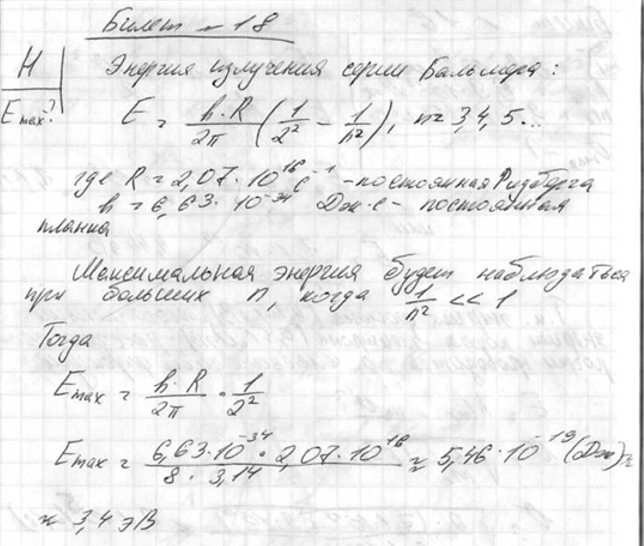 Билет № 18
H
Emax?
Энергия излучения серии Бальмера:
E = h·R/2π (1/2² − 1/n²), n = 3,4,5...
где R = 2,07·10¹⁶ с⁻¹ - постоянная Ридберга
h = 6,63·10⁻³⁴ Дж·с - постоянная
планка
Максимальная энергия будет наблюдаться
при больших n, когда 1/n² << 1
Тогда
Emax = h·R/2π · 1/2²
Emax = 6,63·10⁻³⁴·2,07·10¹⁶/8·3,14 ≈ 5,46·10⁻¹⁹ (Дж) ≈
≈ 3,4 эВ